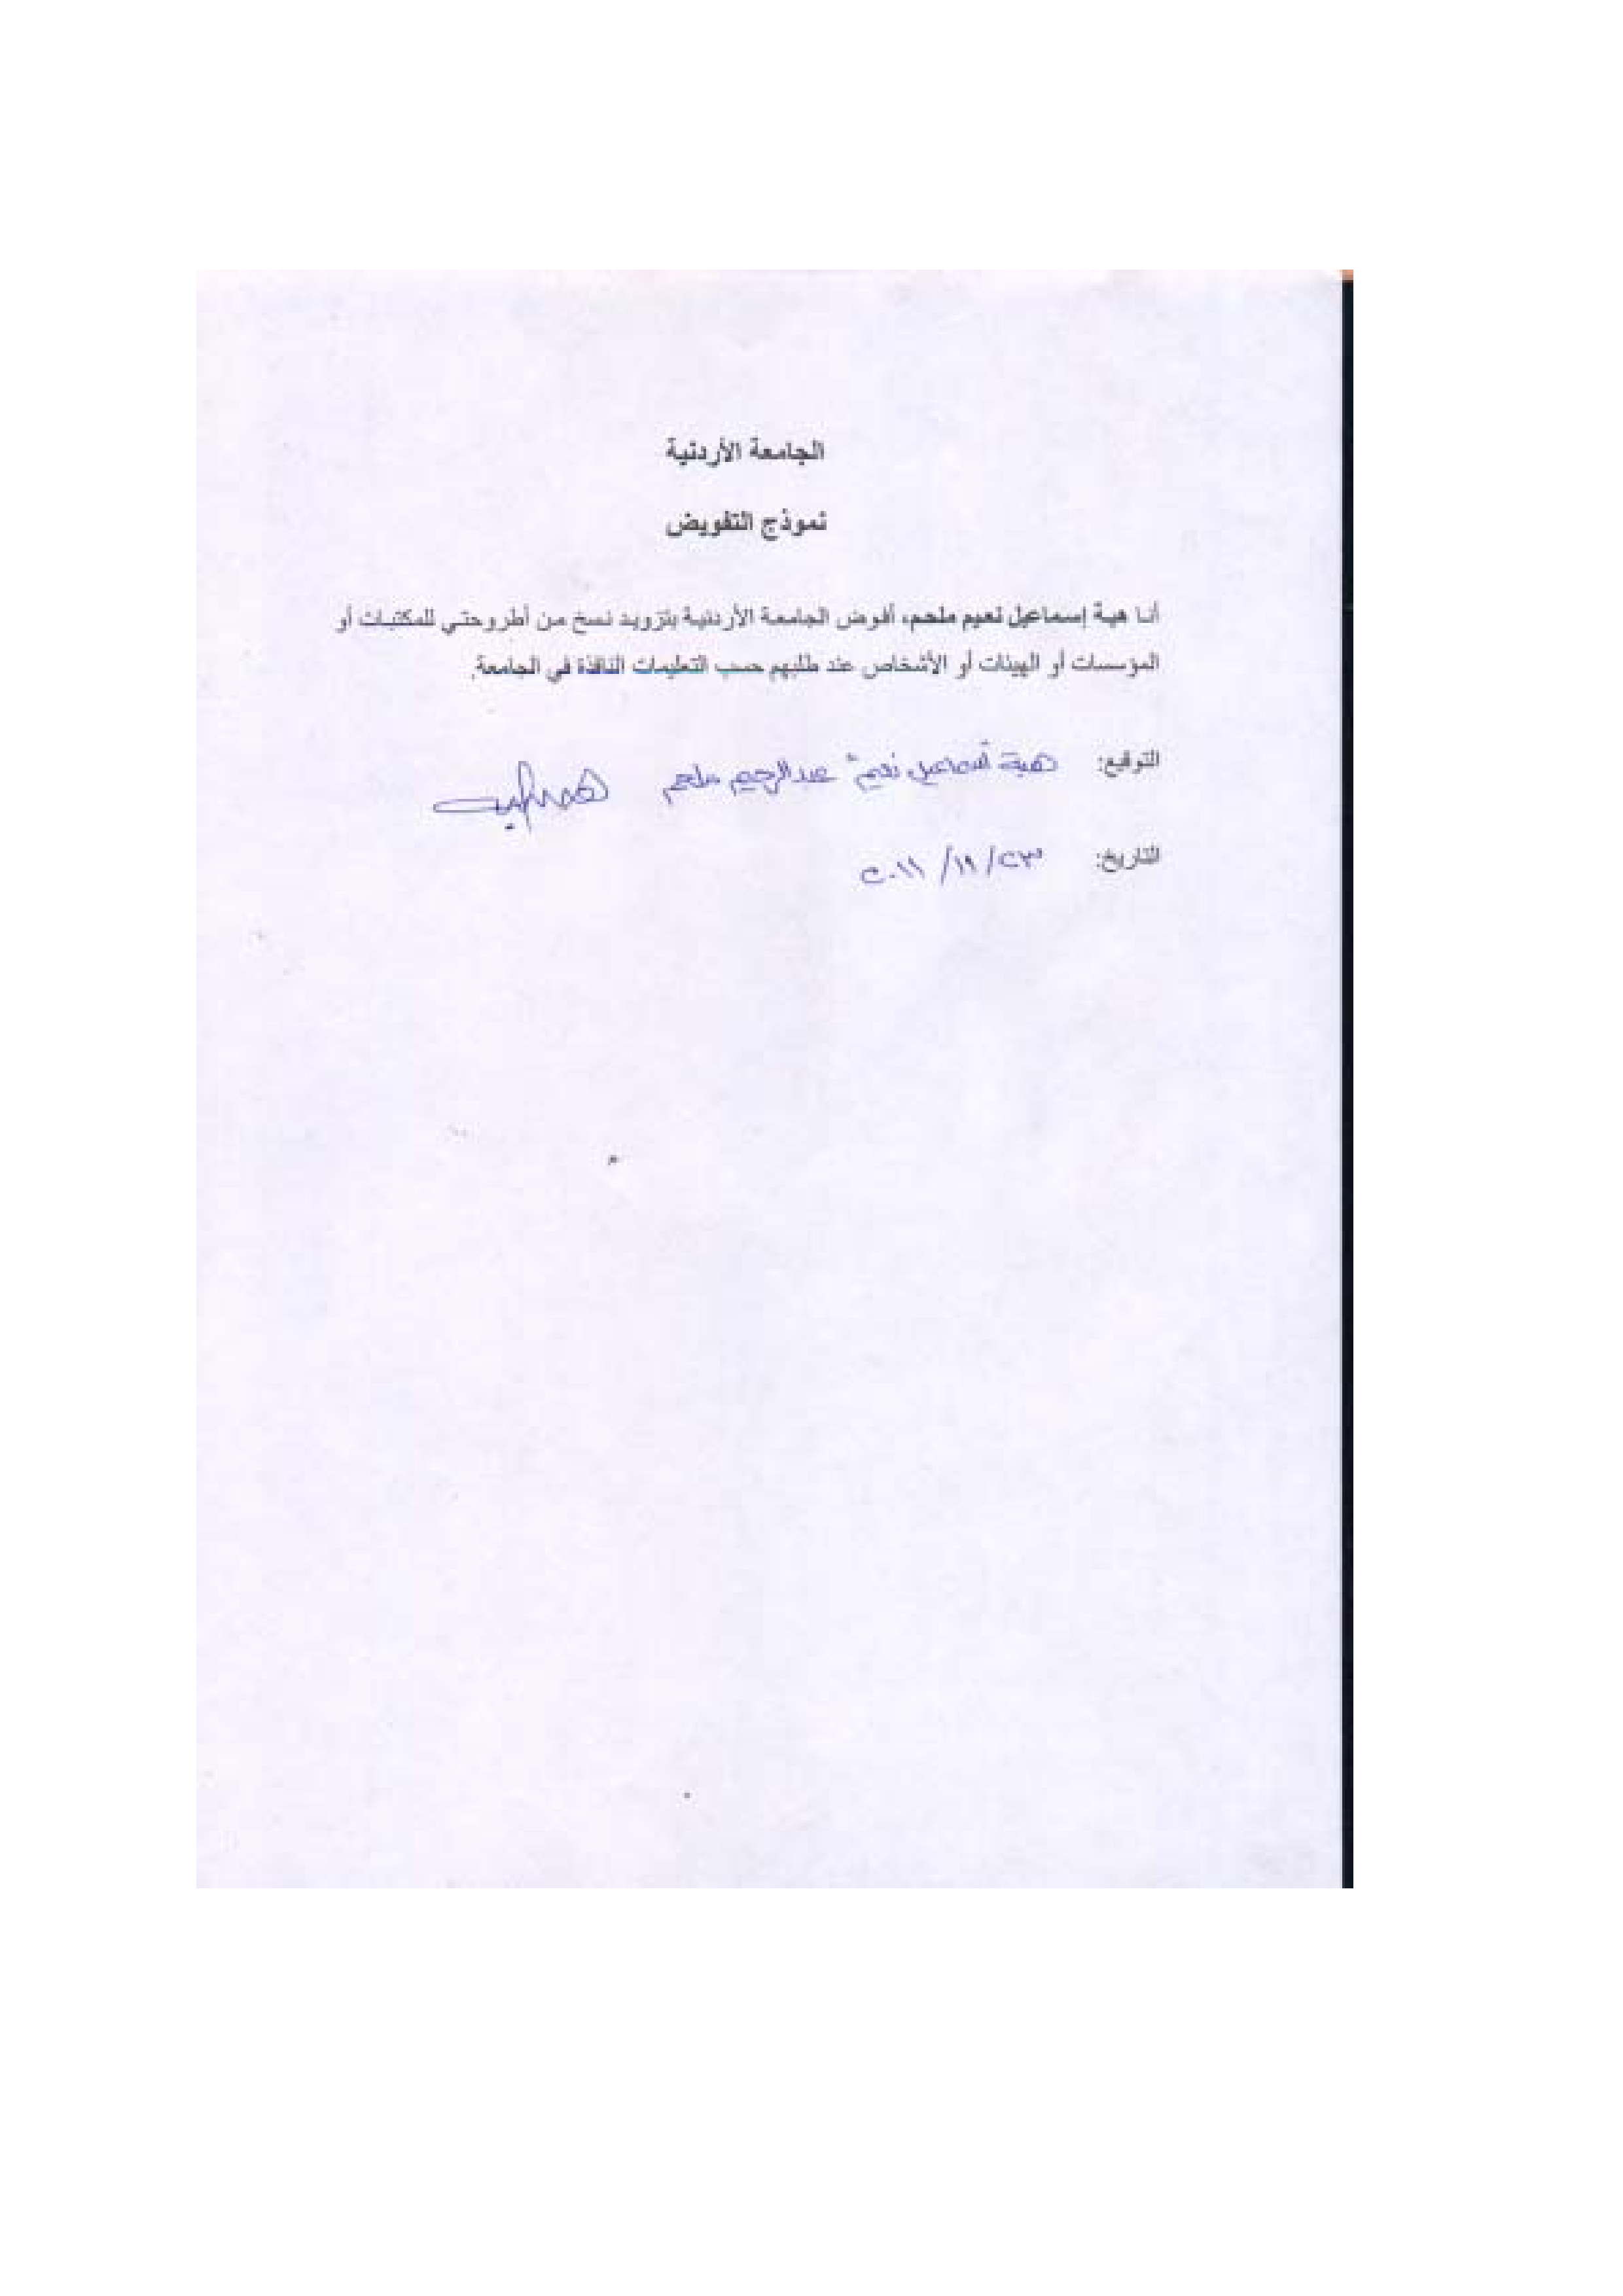 الجامعة الأردنية
نموذج التفويض
أنا هبة إسماعيل نعيم ملحم، أفوض الجامعة الأردنية بتزويد نسخ من أطروحتي للمكتبات أو
المؤسسات أو الهيئات أو الأشخاص عند طلبهم حسب التعليمات النافذة في الجامعة.
التوقيع: هبة اسماعيل "نعيم" عبدالرحيم ملحم
التاريخ: ٢٠١١